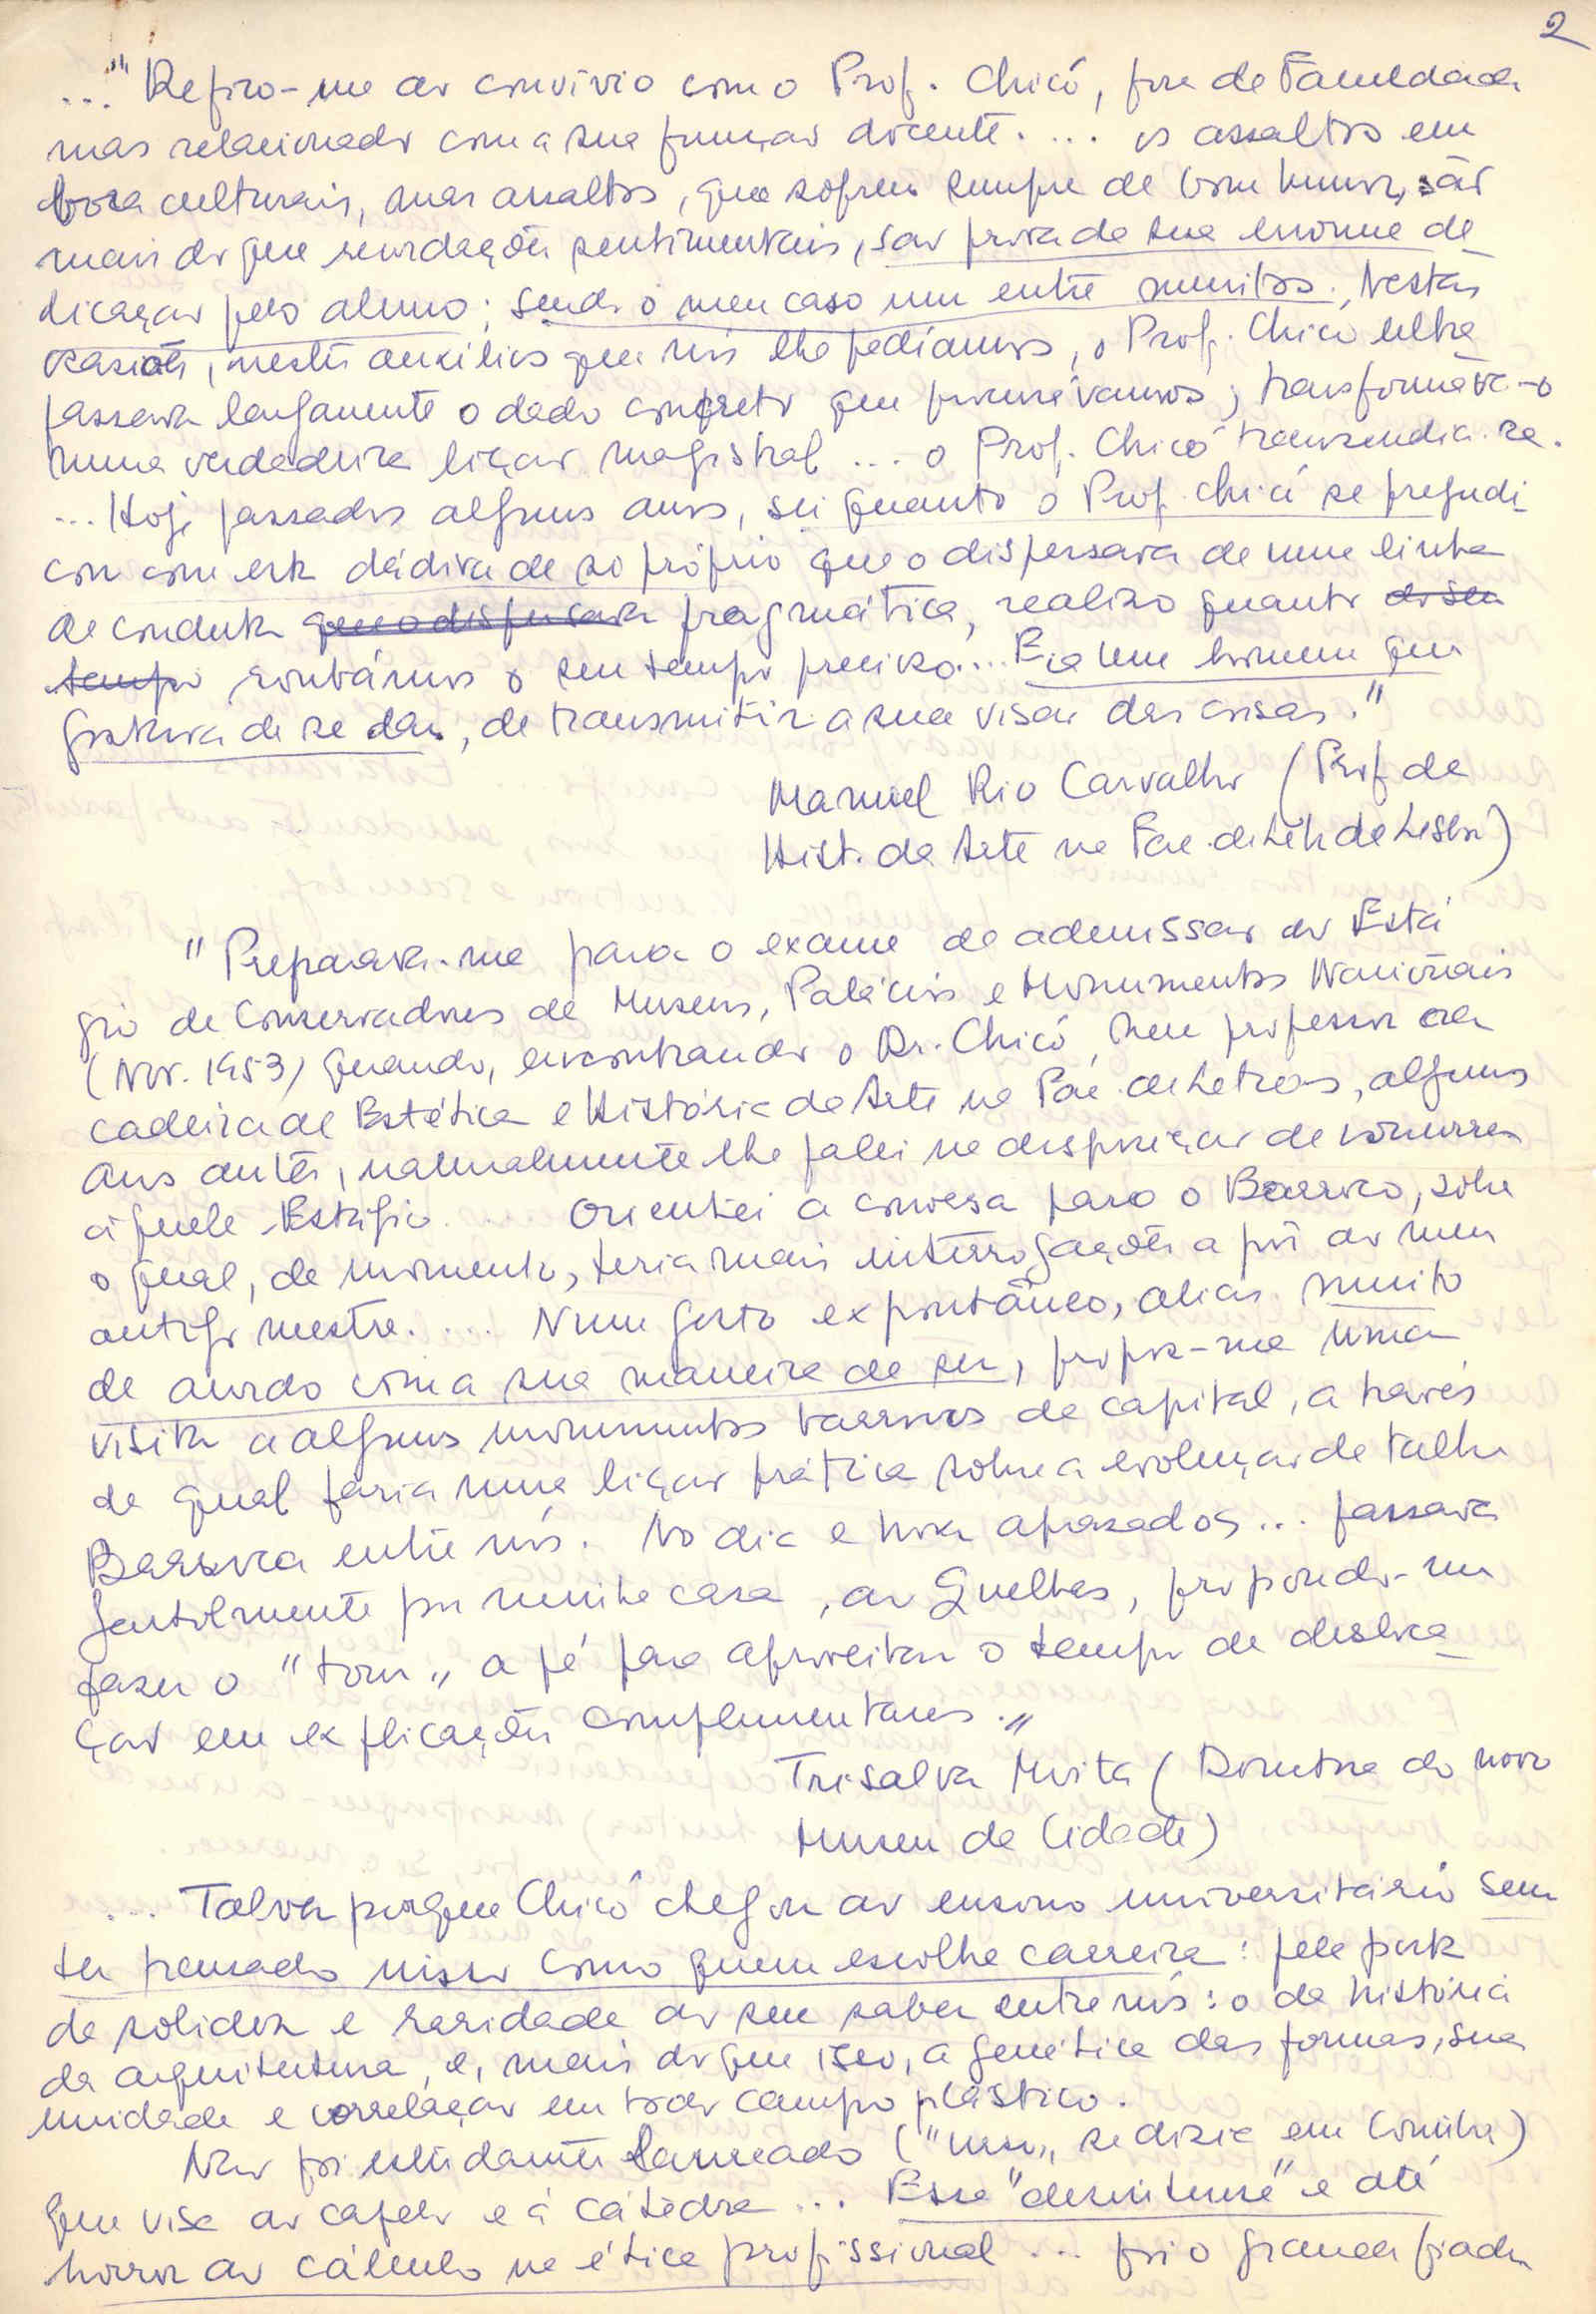 2
..." Refiro-me ao convívio com o Prof. Chicó, fora da Faculdade
mas relacionado com a sua função docente. ... os assaltos em
bora culturais, mas assaltos, que sofreu sempre de bom humor, são
mais do que recordações sentimentais, são prova da sua enorme de
dicação pelo aluno; sendo o meu caso um entre muitos. Nestas
ocasiões, nestes auxílios que nós lhe pedíamos, o Prof. Chicó ultra
passava largamente o dado concreto que procurávamos; transformava-o
numa verdadeira lição magistral ... o Prof. Chicó transcendia-se.
... Hoje passados alguns anos, sei quanto o Prof. Chicó se prejudi
cou com esta dádiva de si próprio que o dispersava de uma linha
de conduta que o dispersava pragmática, realizo quanto do seu
tempo roubámos o seu tempo preciso.... Era um homem que
gostava de se dar, de transmitir a sua visão das coisas."
Manuel Rio Carvalho (Prof de
Hist. da Arte na Fac. de Let. de Lisboa)
" Preparava-me para o exame de admissão ao Está
gio de Conservadores de Museus, Palácios e Monumentos Nacionais
(Nov. 1953) quando, encontrando o Dr. Chicó, meu professor da
cadeira de Estética e História da Arte na Fac. de Letras, alguns
anos antes, naturalmente lhe falei na disposição de concorrer
àquele Estágio ... Orientei a conversa para o Barroco, sobre
o qual, de momento, teria mais interrogações a pôr ao meu
antigo mestre. ... Num gesto expontâneo, aliás muito
de acordo com a sua maneira de ser, propoz-me uma
visita a alguns monumentos barrocos da capital, através
da qual faria uma lição prática sobre a evolução da talha
Barroca entre nós. No dia e hora aprazados ... passava
gentilmente por minha casa, ao Quelhas, propondo-me
fazer o "tour" a pé para aproveitar o tempo da desloca
ção em explicações complementares."
Irisalva Moita (Directora do novo
Museu da Cidade)
... Talvez porque Chicó chegou ao ensino universitário sem
ter pensado nisso como quem escolhe carreira: pela porta
da solidez e raridade do seu saber entre nós: o da história
da arquitectura, e, mais do que isso, a genética das formas, sua
unidade e correlação em todo campo plástico.
Não foi estudante laureado ("urso" se dizia em Coimbra)
que visa ao capelo e à cátedra ... Esse "desinteresse" e até
horror ao cálculo na ética profissional ... foi o grande